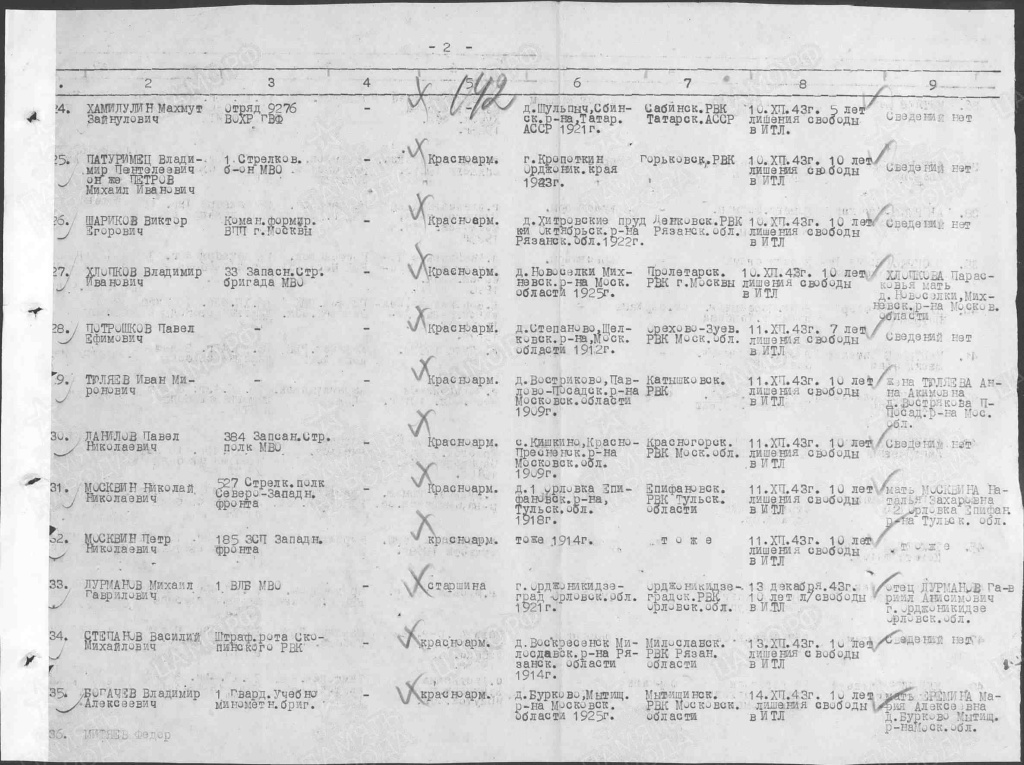 - 2 -
2 3 4 5 6 7 8 9
142
24. ХАМИЛУЛИН Махмут отряд 9276 - - д.Шульпыч,Сбин- Сабинск.РВК 10.ХП.43г. 5 лет Сведений нет
Зайнулович ВОХР ГВФ ск.р-на,Татар. Татарск.АССР лишения свободы
АССР 1921г. в ИТЛ.
25. ПАТУРИМЕЦ Влади- 1 Стрелков. - Красноарм. г.Кропоткин Горьковск.РВК 10.ХП.43г. 10 лет Сведений нет
мир Пентелеевич б-он МВО орджоник.края лишения свободы
он же ПЕТРОВ 1923г. в ИТЛ
Михаил Иванович
26. ШАРИКОВ Виктор Коман.формир. - Красноарм. д.Хитровские пруд Ленковск.РВК 10.ХП.43г. 10 лет Сведений нет
Егорович ВПП г.Москвы ки Октябрьск.р-на Рязанск.обл. лишения свободы
Рязанск.обл.1922г. в ИТЛ
27. ХЛОПКОВ Владимир 33 Запасн.Стр. - Красноарм. д.Новоселки Мих- Пролетарск. 10.ХП.43г. 10 лет ХЛОПКОВА Парас-
Иванович бригада МВО невск.р-на Моск. РВК г.Москвы лишения свободы ковья мать
области 1925г. в ИТЛ д.Новоселки,Мих-
невск.р-на Москов.
области
28. ПОТРОШКОВ Павел - - Красноарм. д.Степаново,Щел- орехово-Зуев. 11.ХП.43г. 7 лет Сведений нет
Ефимович ковск.р-на,Моск. РВК Моск.обл. лишения свободы
области 1912г. в ИТЛ
29. ТЮЛЯЕВ Иван Ми- - - Красноарм. д.Востриково,Пав- Катышковск. 11.ХП.43г. 10 лет жена ТЮЛЯЕВА Ан-
ронович лово-Посадск.р-на РВК лишения свободы на Акимовна
Московск.области в ИТЛ д.Вострякова П-
1909г. Посад.р-на Мос.
обл.
30. ДАНИЛОВ Павел 384 Запсан.Стр. - Красноарм. с.Кишкино,Красно- Красногорск. 11.ХП.43г. 10 лет Сведений нет
Николаевич полк МВО Пресненск.р-на РВК Моск.обл. лишения свободы
Московск.обл. в ИТЛ
1909г.
31. МОСКВИН Николай 527 Стрелк.полк - Красноарм. д.1 орловка Епи- Епифановск. 11.ХП.43г. 10 лет мать МОСКВИНА На-
Николаевич Северо-Западн. фановск.р-на, РВК Тульск. лишения свободы талья Захаровна
фронта Тульск.обл. области в ИТЛ 2 орловка Епифан.
1918г. р-на Тульск. обл.
32. МОСКВИН Петр 185 ЗСП Западн. - красноарм. тоже 1914г. т о ж е 11.ХП.43г. 10 лет т о ж е
Николаевич фронта лишения свободы
в ИТЛ
33. ДУРМАНОВ Михаил 1 ВЛБ МВО - старшина г.орджоникидзе- орджоникидзе- 13 декабря.43г. отец ДУРМАНОВ Га-в
Гаврилович град орловск.обл. градск.РВК 10 лет л/свободы риил Анисимович
1921г. орловск.обл. в ИТЛ г.орджоникидзе
орловск.обл.
34. СТЕПАНОВ Василий Штраф.рота Ско- - красноарм. д.Воскресенск Ми- Милославск. 13.ХП.43г. 10 лет Сведений нет
Михайлович пинского РВК лославск.р-на Ря- РВК Рязан. лишения свободы
занск. области области в ИТЛ
1914г.
35. БОГАЧЕВ Владимир 1 Гвард.Учебно - красноарм. д.Бурково,Мытищ. Мытищинск. 14.ХП.43г. 10 лет мать ЕРЕМИНА Ма-
Алексеевич минометн.бриг. р-на Московск. РВК Московск. лишения свободы рия Алексеевна
области 1925г. области в ИТЛ д.Бурково Мытищ.
р-наМоск.обл.
36. Федор